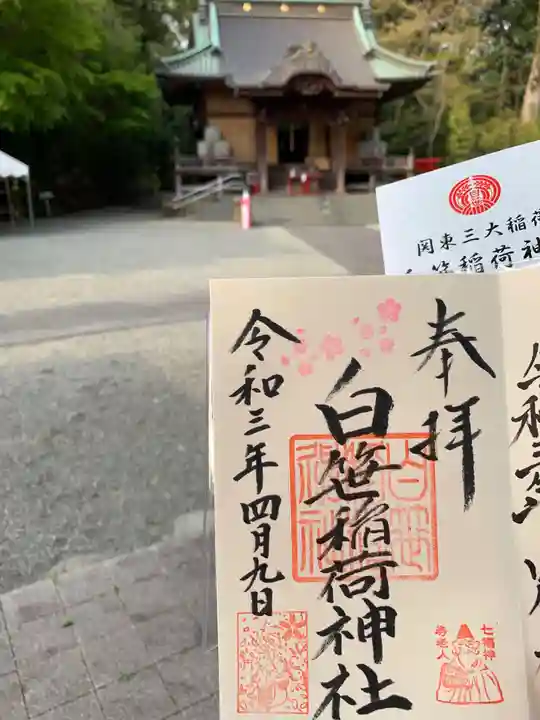 関東三大稲荷
白笹稲荷神
奉拝
白笹稲荷神社
令和三年四月九日
七福神
寿老人